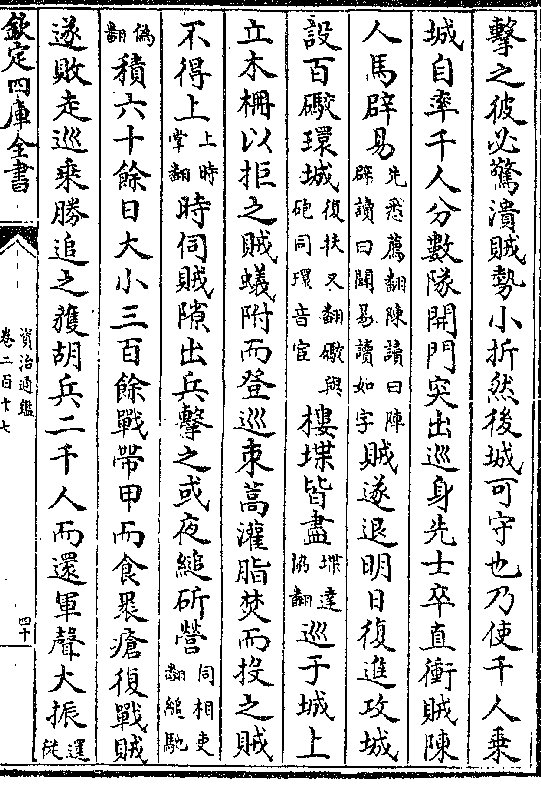 擊之彼必驚潰賊勢小折然後城可守也乃使千人乗
城自率千人分數隊開門突出巡身先士卒直衝賊陳
人馬辟易先悉薦翻陳讀曰陣辟讀曰闢易讀如字賊遂退明日復進攻城
設百礮環城復扶又翻礮與砲同環音宦樓堞皆盡堞達協翻巡于城上
立木柵以拒之賊蟻附而登巡束蒿灌脂焚而投之賊
不得上上時掌翻時伺賊隙出兵擊之或夜縋斫營伺相吏翻縋馳
偽翻積六十餘日大小三百餘戰帶甲而食裹瘡復戰賊
遂敗走巡乘勝追之獲胡兵二千人而還軍聲大振還從
欽定四庫全書
資治通鑑
卷二百十七
四十